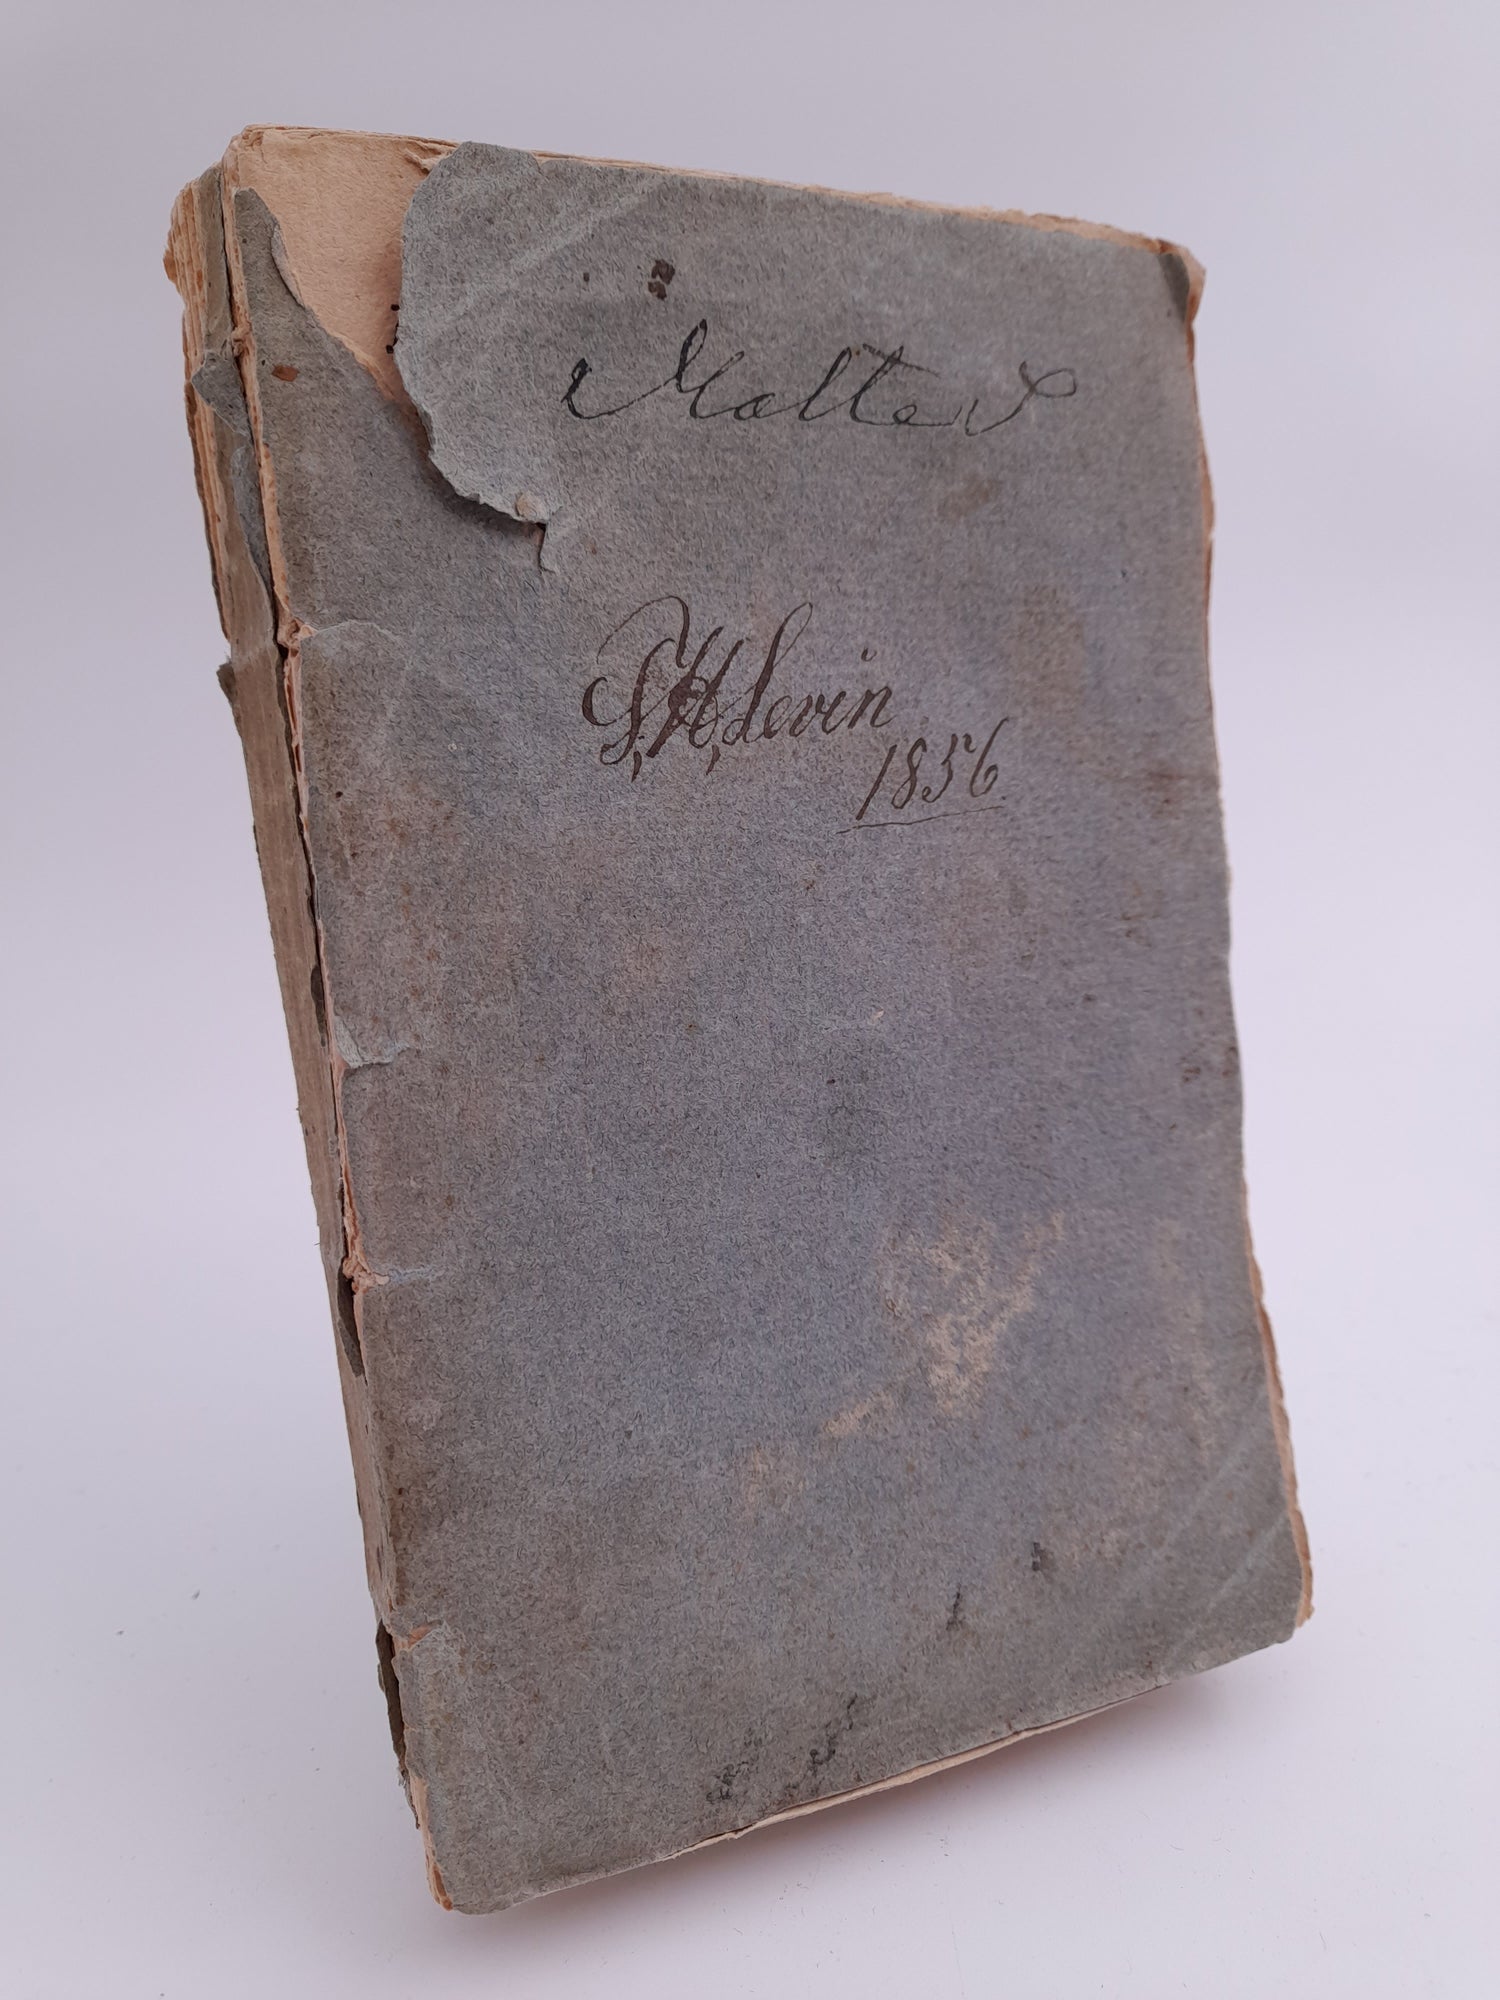 Malte
S, H, Levin
1856